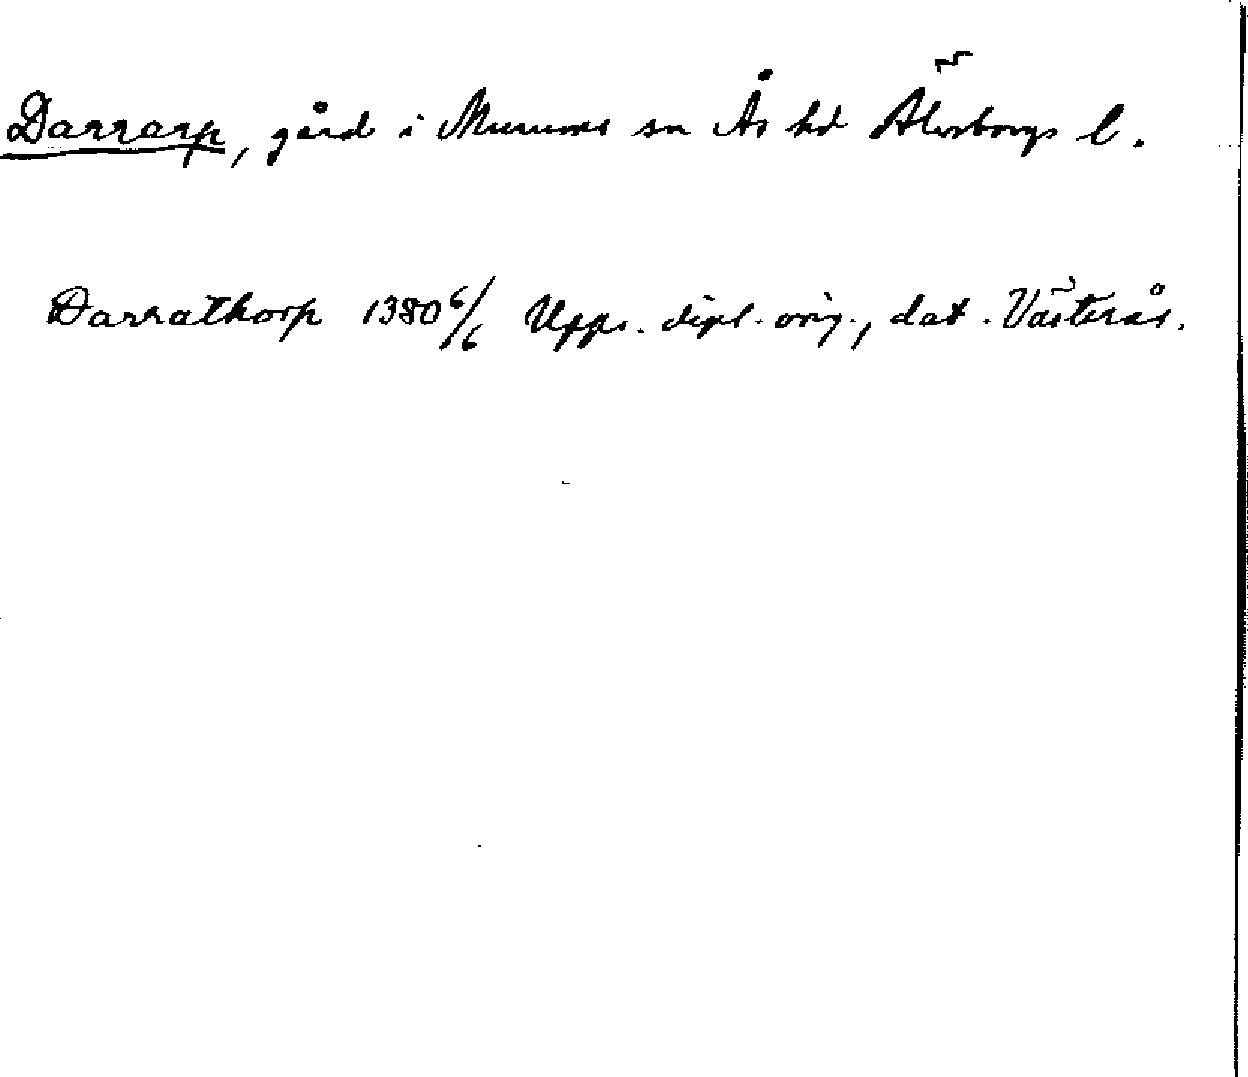 Darrarp, gård i Murums sn Ås hd Älvsborgs l.
Darrathorp 1380 6/6 Upps. dipl. orig., dat. Västerås.